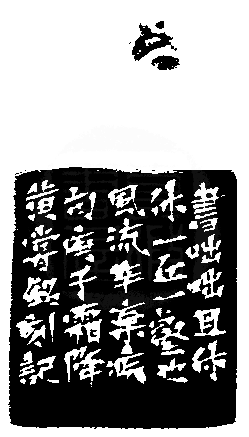 書咄咄且休
休一丘一壑也
風流辛棄疾
句庚子霜降
黃嘗銘刻記